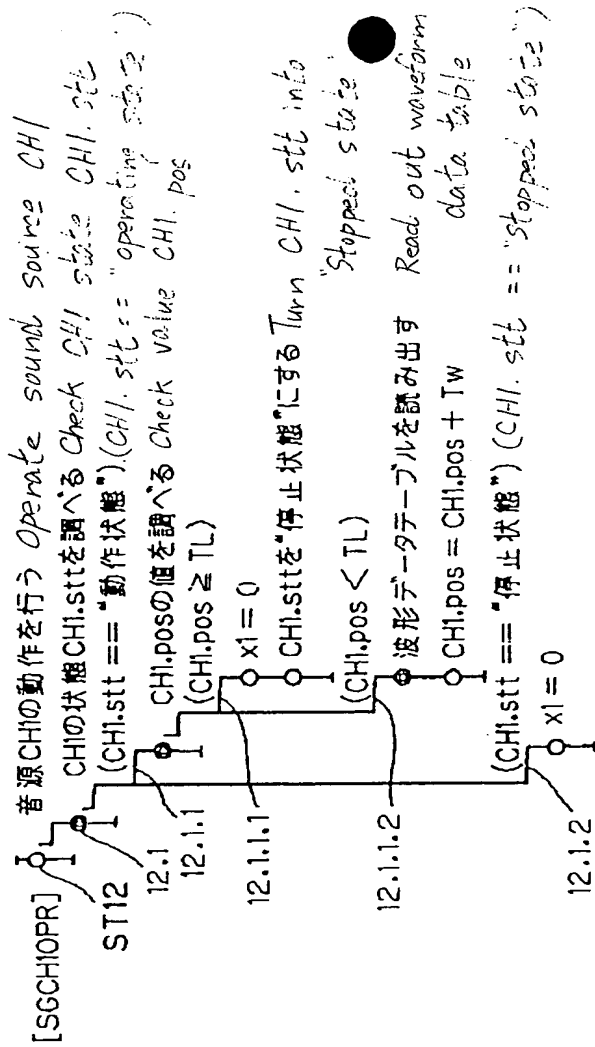 [SGCH1OPR]
音源CH1の動作を行う Operate sound source CH1
ST12
CH1の状態CH1.sttを調べる Check CH1 state CH1.stt
12.1
(CH1.stt == "動作状態") (CH1.stt == "operating state")
12.1.1
CH1.posの値を調べる Check value CH1.pos
(CH1.pos ≧ TL)
12.1.1.1
x1 = 0
CH1.sttを"停止状態"にする Turn CH1.stt into
"Stopped state"
(CH1.pos < TL)
12.1.1.2
波形データテーブルを読み出す Read out waveform
data table
CH1.pos = CH1.pos + Tw
(CH1.stt == "停止状態") (CH1.stt == "Stopped state")
12.1.2
x1 = 0